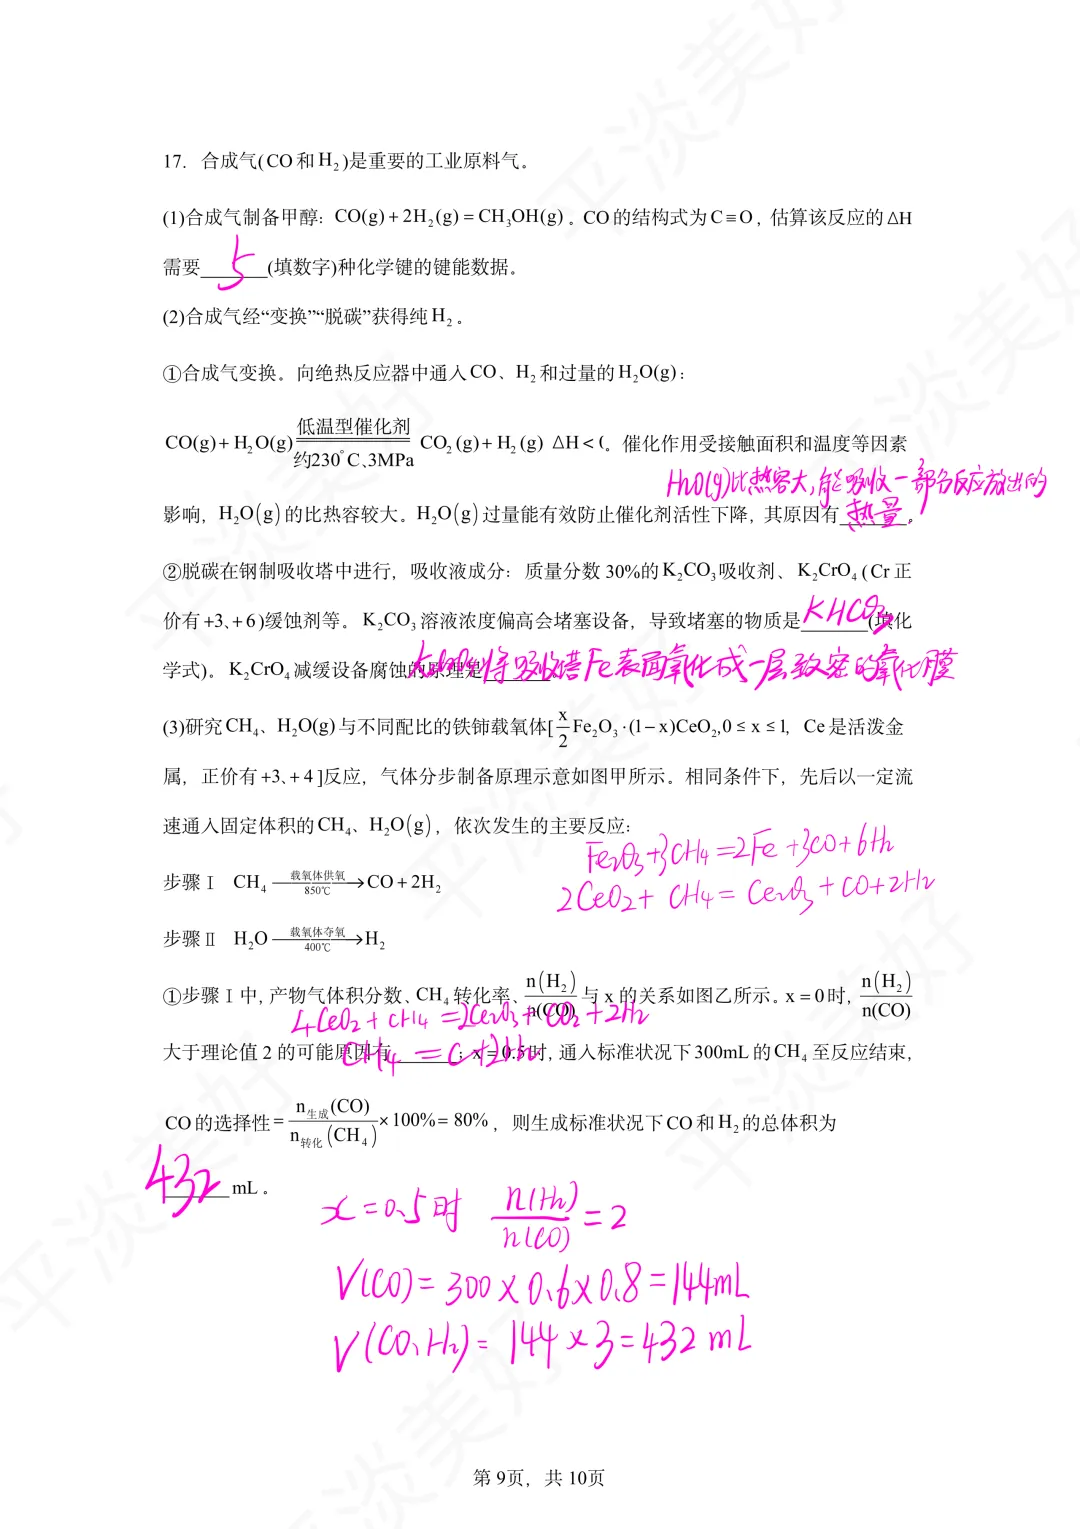 17. 合成气(CO和H₂)是重要的工业原料气。
(1)合成气制备甲醇：CO(g)+2H₂(g)=CH₃OH(g)。CO的结构式为C≡O，估算该反应的ΔH
需要 5 (填数字)种化学键的键能数据。
(2)合成气经“变换”“脱碳”获得纯H₂。
①合成气变换。向绝热反应器中通入CO、H₂和过量的H₂O(g)：
低温型催化剂
CO(g)+H₂O(g) ═══ CO₂(g)+H₂(g) ΔH<0。催化作用受接触面积和温度等因素
约230°C、3MPa
H₂O(g)比热容大，能吸收一部分反应放出的
影响，H₂O(g)的比热容较大。H₂O(g)过量能有效防止催化剂活性下降，其原因有 热量 。
②脱碳在钢制吸收塔中进行，吸收液成分：质量分数30%的K₂CO₃吸收剂、K₂CrO₄(Cr正
价有+3、+6)缓蚀剂等。K₂CO₃溶液浓度偏高会堵塞设备，导致堵塞的物质是 KHCO₃ (填化
学式)。K₂CrO₄减缓设备腐蚀的原理是 将吸收塔Fe表面氧化成一层致密的氧化膜
(3)研究CH₄、H₂O(g)与不同配比的铁铈载氧体[x/2 Fe₂O₃·(1−x)CeO₂,0≤x≤1，Ce是活泼金
属，正价有+3、+4]反应，气体分步制备原理示意如图甲所示。相同条件下，先后以一定流
速通入固定体积的CH₄、H₂O(g)，依次发生的主要反应：
Fe₂O₃+3CH₄=2Fe+3CO+6H₂
步骤Ⅰ CH₄ —载氧体供氧 850℃→ CO+2H₂
2CeO₂+CH₄=Ce₂O₃+CO+2H₂
步骤Ⅱ H₂O —载氧体夺氧 400℃→ H₂
①步骤Ⅰ中，产物气体积分数、CH₄转化率、n(H₂)/n(CO)与x的关系如图乙所示。x=0时，n(H₂)/n(CO)
4CeO₂+CH₄=2Ce₂O₃+CO₂+2H₂
大于理论值2的可能原因有 CH₄=C+2H₂ ；x=0.5时，通入标准状况下300mL的CH₄至反应结束，
CO的选择性=n生成(CO)/n转化(CH₄)×100%=80%，则生成标准状况下CO和H₂的总体积为
432 mL。
x=0.5时 n(H₂)/n(CO)=2
V(CO)=300×0.6×0.8=144mL
V(CO、H₂)=144×3=432mL
第9页，共10页
平淡美好